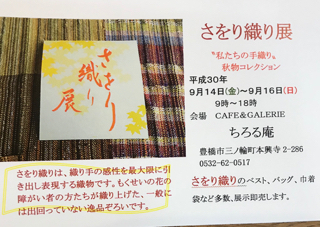 さをり織り展
さをり織り展
〝私たちの手織り〟
秋物コレクション
平成30年
9月14日(金)~9月16日(日)
9時~18時
会場 CAFE&GALERIE
ちろる庵
豊橋市三ノ輪町本興寺2-286
0532-62-0517
さをり織りは、織り手の感性を最大限に引
き出し表現する織物です。もくせいの花の
障がい者の方たちが織り上げた、一般に
は出回っていない逸品ぞろいです。
さをり織りのベスト、バッグ、巾着
袋など多数、展示即売します。